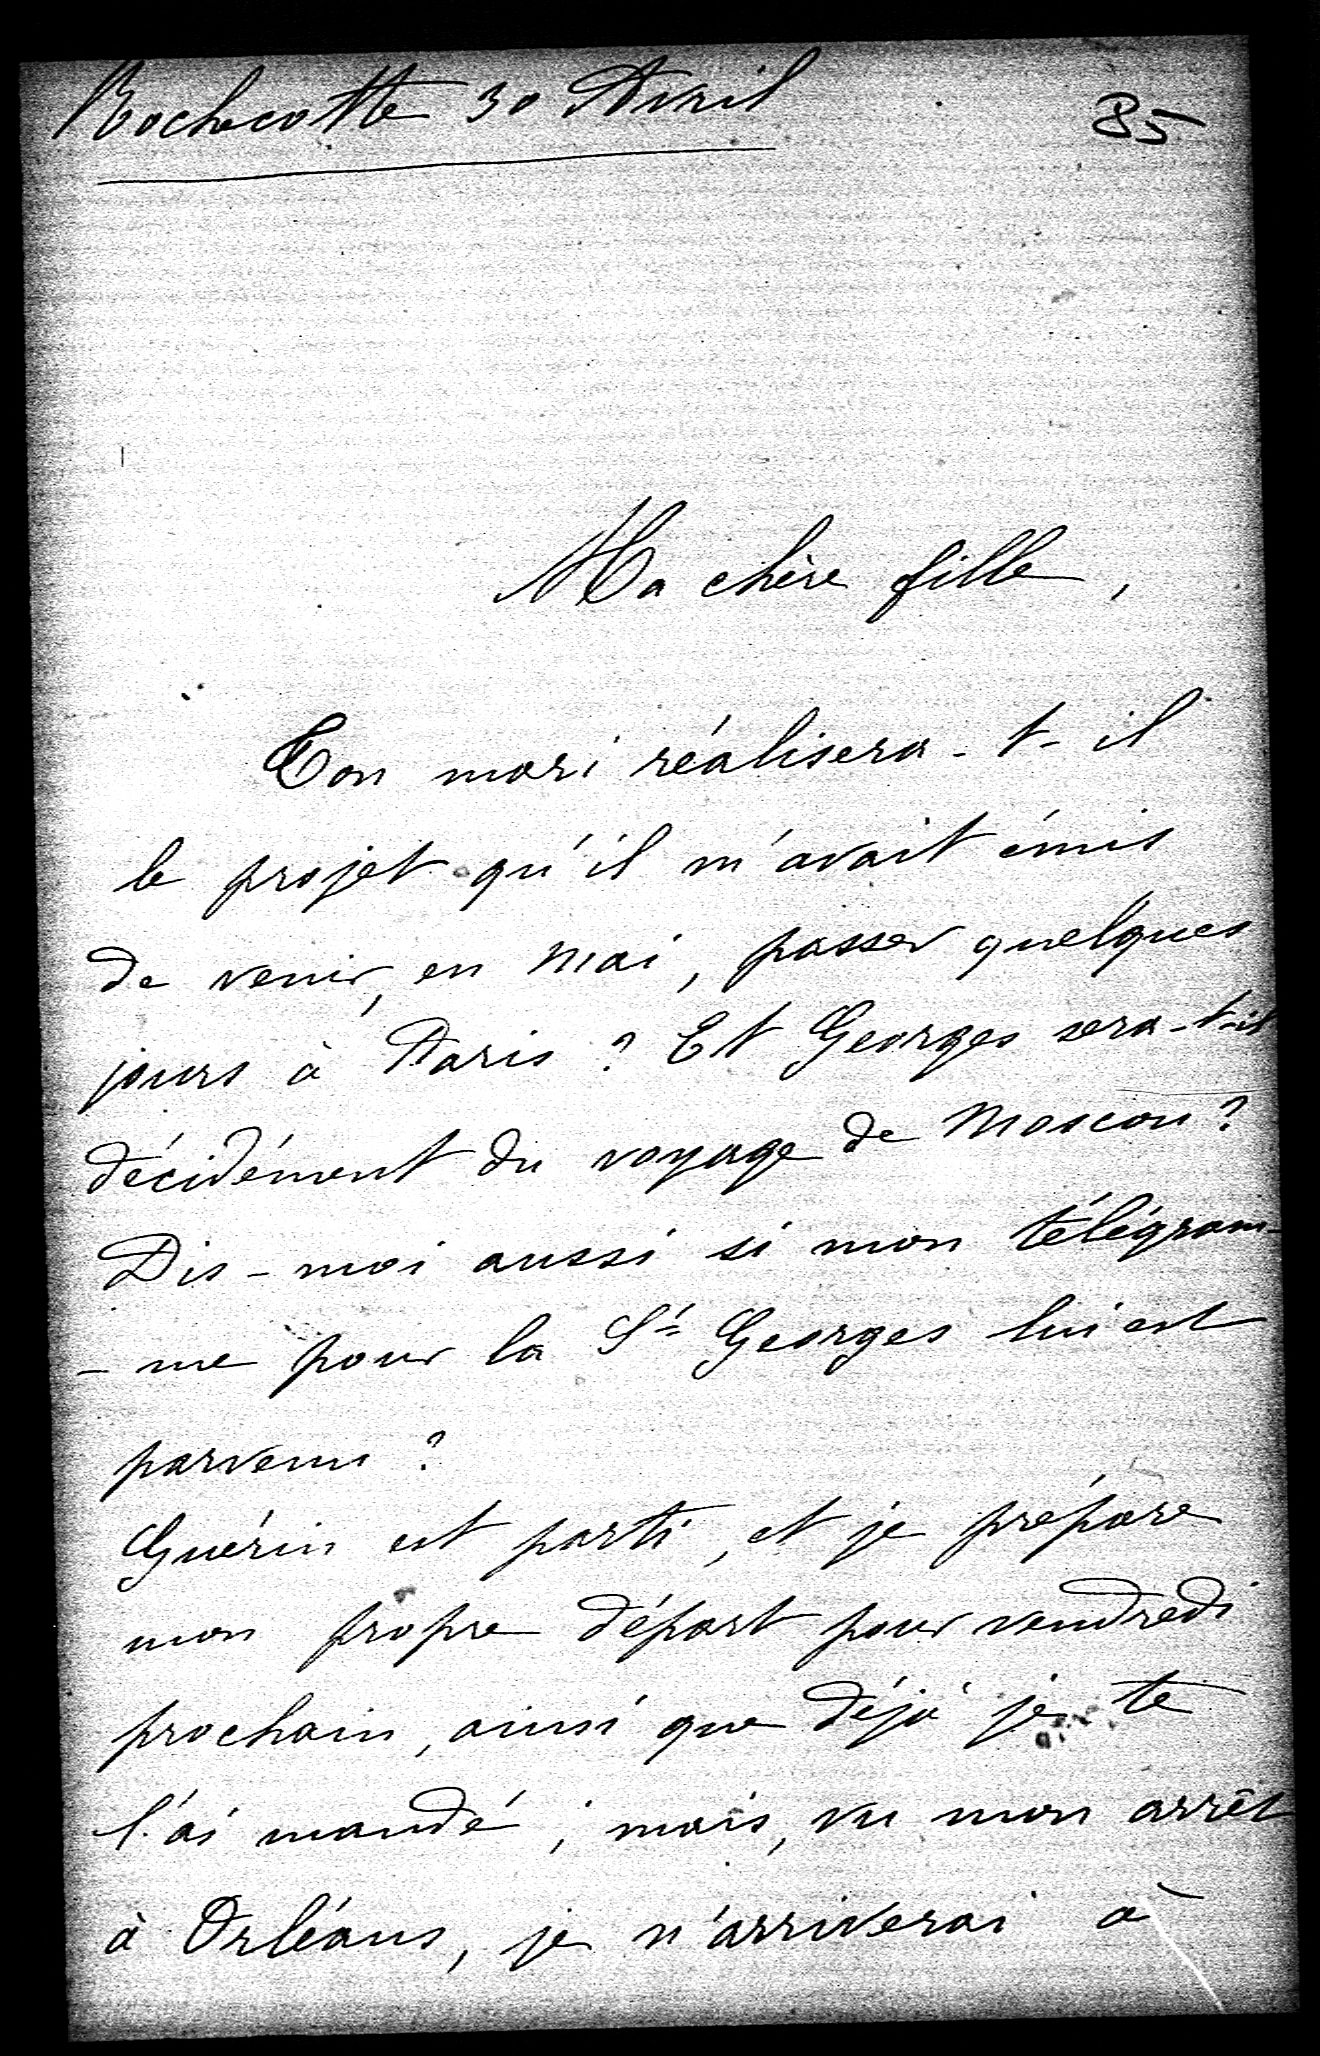 Rochecotte 30 Avril
85
Ma chère fille,
Ton mari réalisera-t-il
le projet qu'il m'avait émis
de venir, en mai, passer quelques
jours à Paris ? Et Georges sera-t-il
décidément du voyage de Moscou ?
Dis-moi aussi si mon télégram-
-me pour la St Georges lui est
parvenu ?
Guérin est parti, et je prépare
mon propre départ pour vendredi
prochain, ainsi que déjà je te
l'ai mandé ; mais, vu mon arrêt
à Orléans, je n'arriverai à